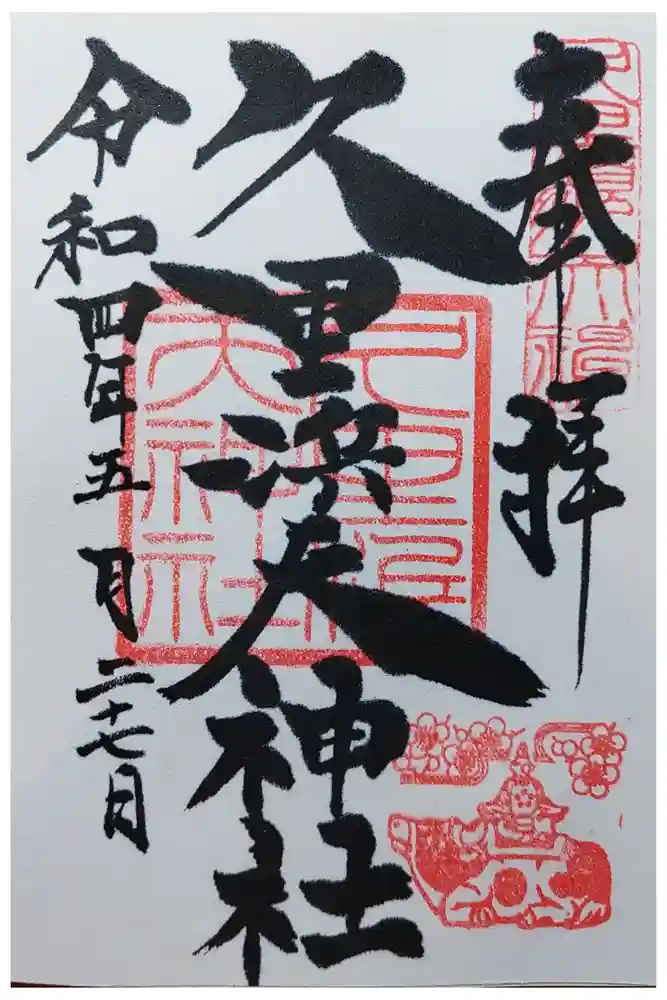 奉拝
久里浜天神社
令和四年五月二十七日